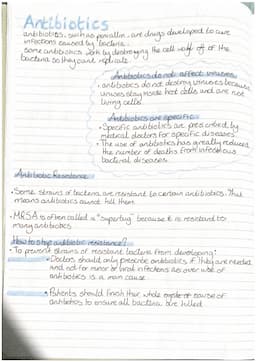 Antibiotics
antibiotics, such as penicillin, are drugs developed to cure
infections caused by bacteria.
some antibiotics work by destroying the cell wall of the
bacteria so they cant replicate
Antibiotics do not affect viruses
• antibiotics do not destroy viruses because
viruses stay inside host cells and are not
living cells.
Antibiotics are specific
• Specific antibiotics are prescribed by
medical doctors for specific diseases
• The use of antibiotics has greatly reduced
the number of deaths from infectious
bacterial diseases.
Antibiotic Resistance
• Some strains of bacteria are resistant to certain antibiotics. This
means antibiotics cannot kill them
• MRSA is often called a "superbug" because it is resistant to
many antibiotics
How to stop antibiotic resistance?
• To prevent strains of resistant bacteria from developing:
• Doctors should only prescribe antibiotics if they are needed
and not for minor or viral infections as over use of
antibiotics is a main cause
• Patients should finish their whole course of
antibiotics to ensure all bacteria are killed